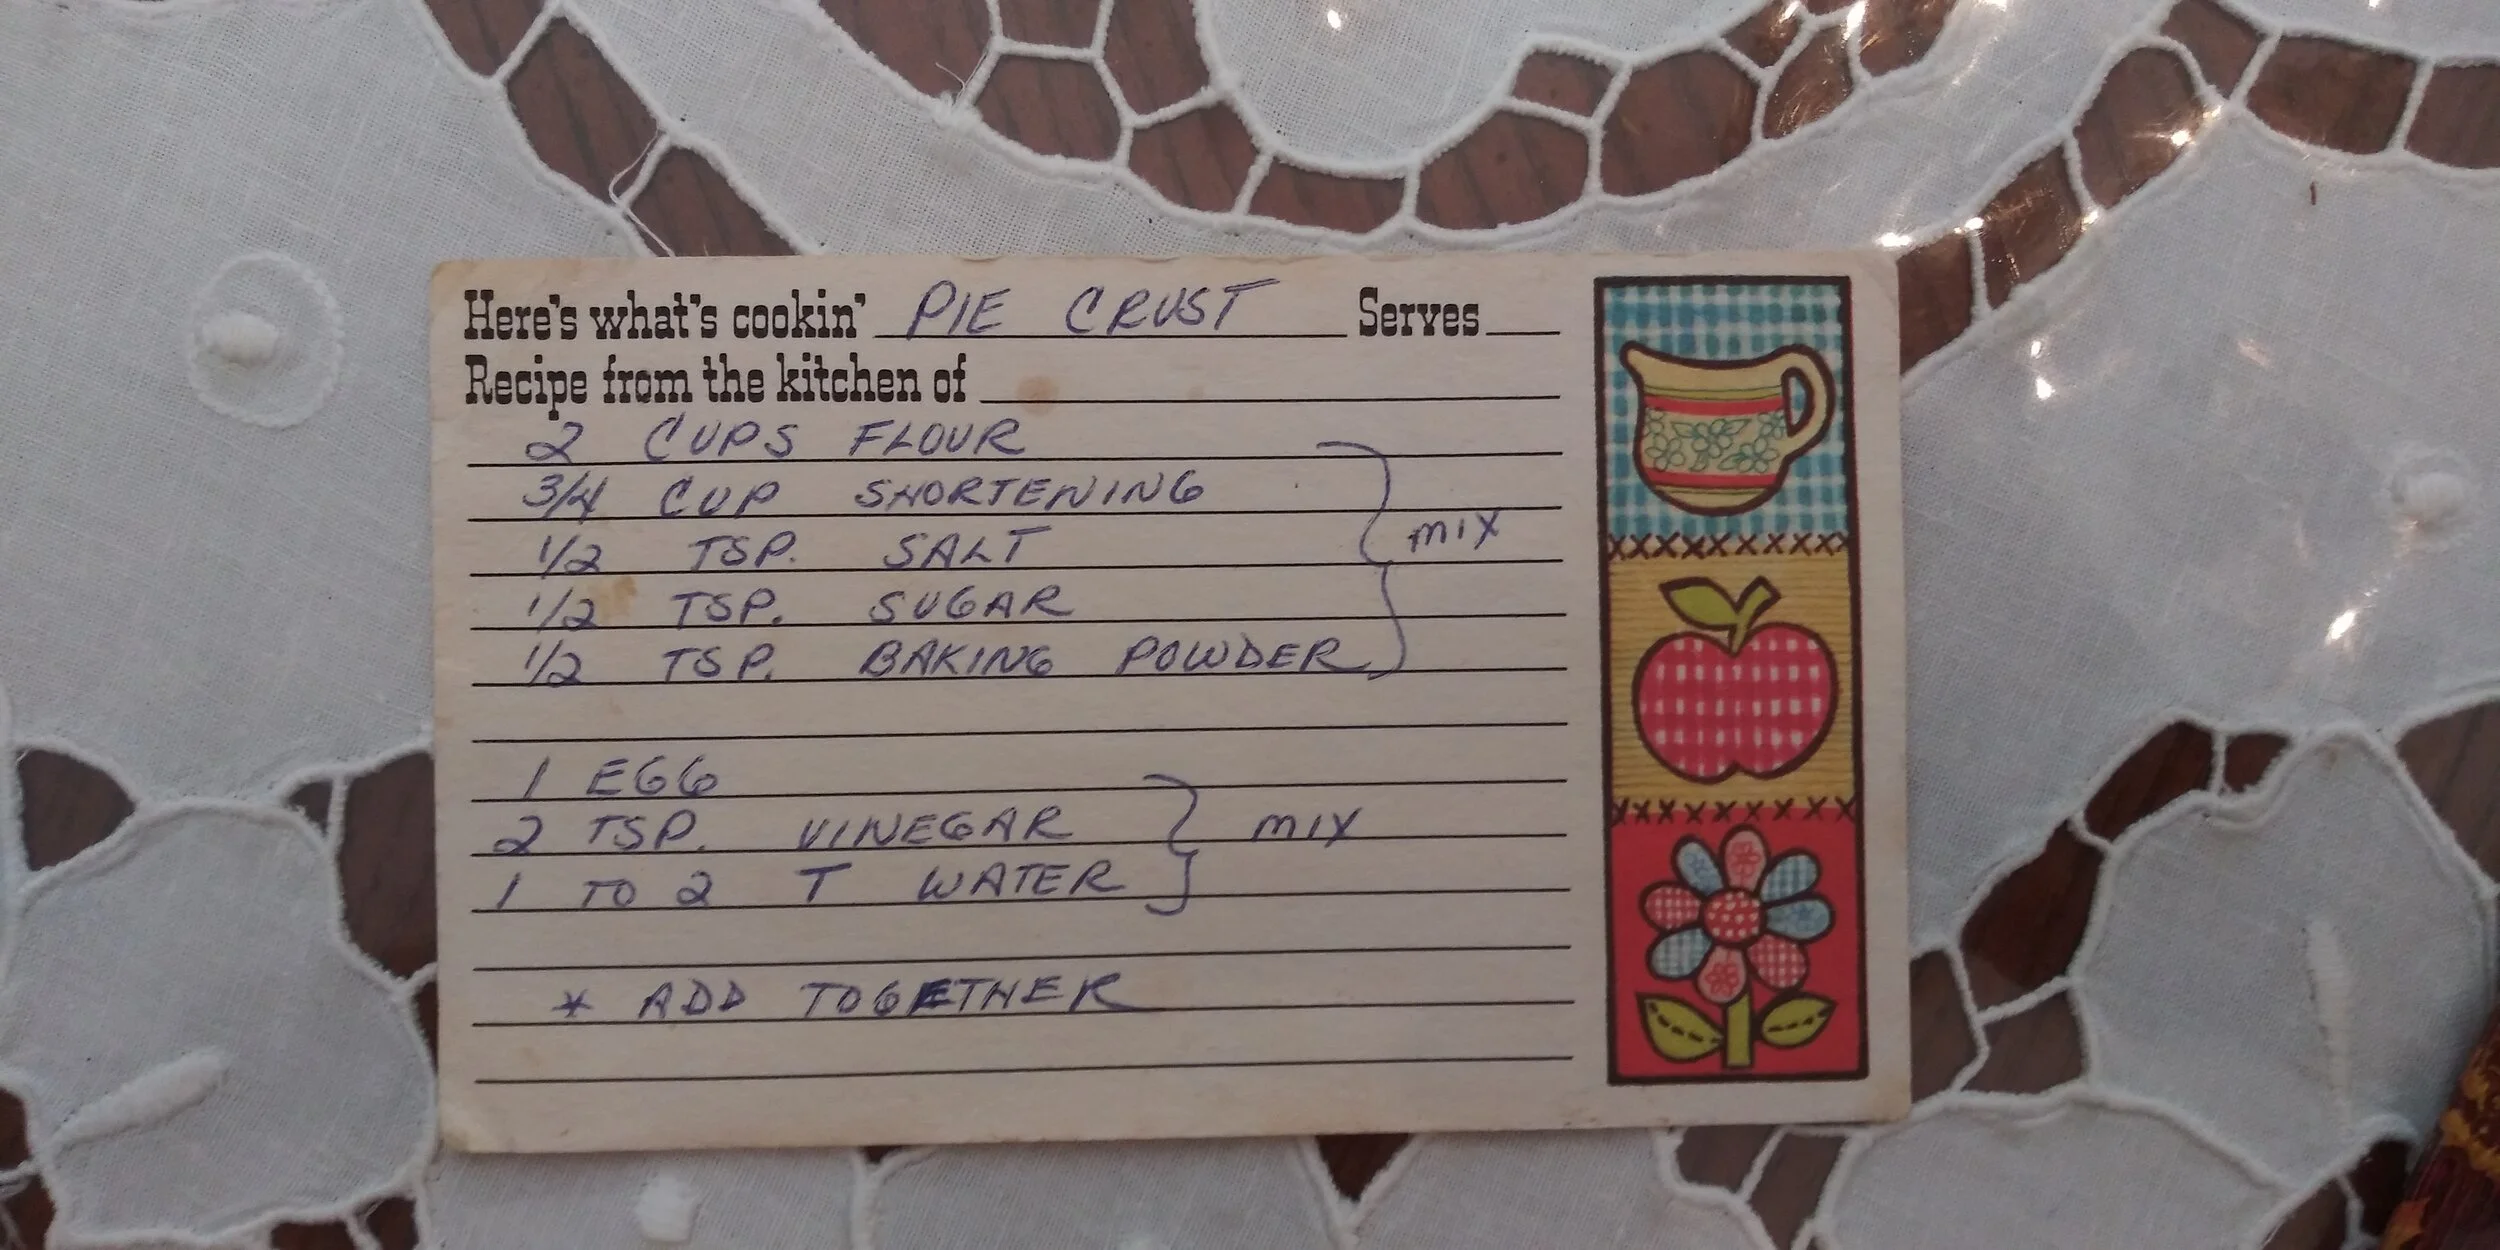 Here's what's cookin' PIE CRUST Serves
Recipe from the kitchen of
2 CUPS FLOUR
3/4 CUP SHORTENING
1/2 TSP. SALT mix
1/2 TSP. SUGAR
1/2 TSP. BAKING POWDER
1 EGG
2 TSP. VINEGAR mix
1 TO 2 T WATER
* ADD TOGETHER